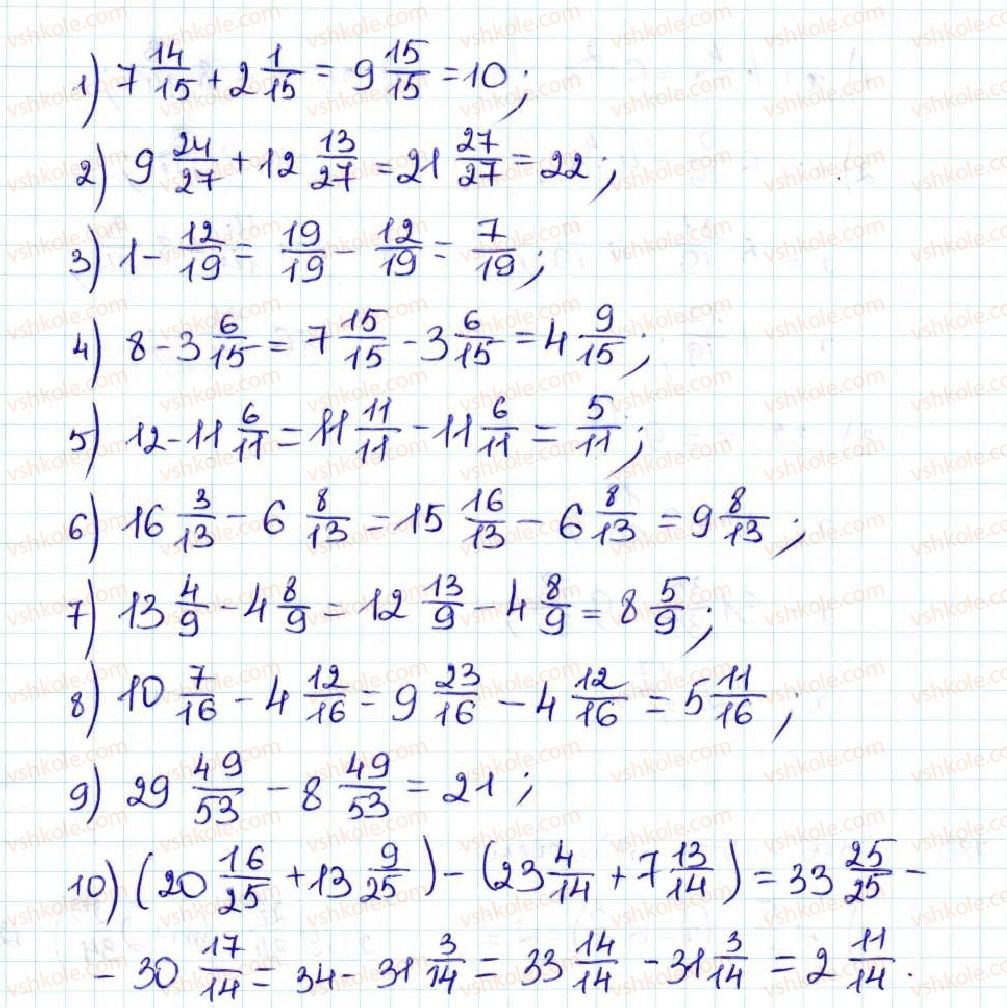 1) 7 14/15 + 2 1/15 = 9 15/15 = 10;
2) 9 24/27 + 12 13/27 = 21 27/27 = 22;
3) 1 - 12/19 = 19/19 - 12/19 = 7/19;
4) 8 - 3 6/15 = 7 15/15 - 3 6/15 = 4 9/15;
5) 12 - 11 6/11 = 11 11/11 - 11 6/11 = 5/11;
6) 16 3/13 - 6 8/13 = 15 16/13 - 6 8/13 = 9 8/13;
7) 13 4/9 - 4 8/9 = 12 13/9 - 4 8/9 = 8 5/9;
8) 10 7/16 - 4 12/16 = 9 23/16 - 4 12/16 = 5 11/16;
9) 29 49/53 - 8 49/53 = 21;
10) (20 16/25 + 13 9/25) - (23 4/14 + 7 13/14) = 33 25/25 -
- 30 17/14 = 34 - 31 3/14 = 33 14/14 - 31 3/14 = 2 11/14.
vshkole.com